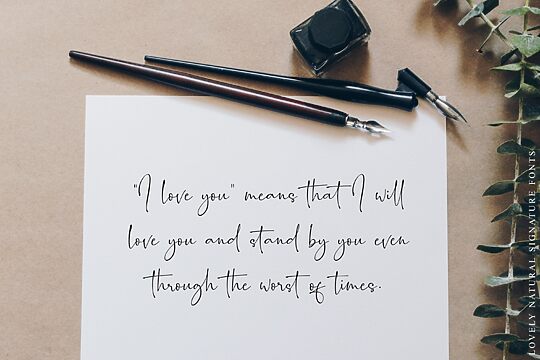 "I love you" means that I will
love you and stand by you even
through the worst of times.
LOVELY NATURAL SIGNATURE FONTS